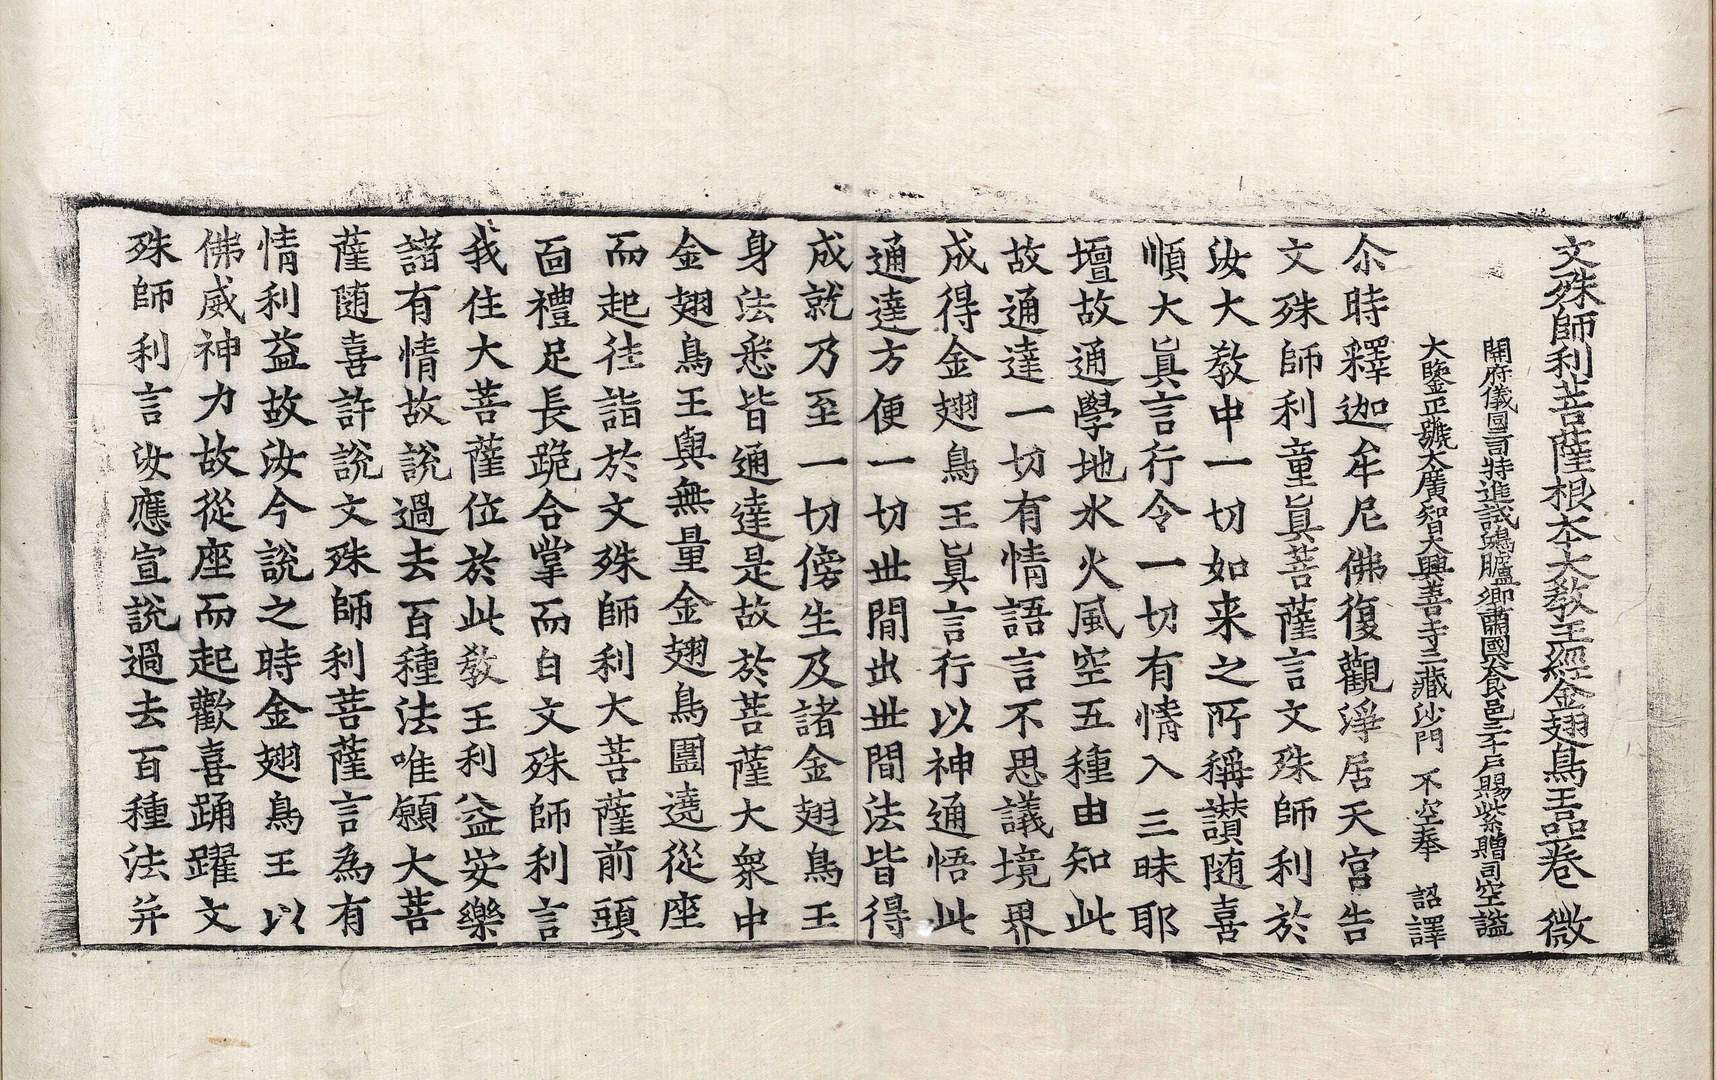 文殊師利菩薩根本大教王經金翅鳥王品卷一 微
開府儀同三司特進試鴻臚卿肅國公食邑三千戶賜紫贈司空謚
大鑒正號大廣智大興善寺三藏沙門 不空奉 詔譯
尒時釋迦牟尼佛復觀淨居天宮告
文殊師利童眞菩薩言文殊師利於
汝大教中一切如来之所稱讃随喜
順大眞言行令一切有情入三昧耶
壇故通學地水火風空五種由知此
故通達一切有情語言不思議境界
成得金翅鳥王眞言行以神通悟此
通達方便一切世間出世間法皆得
成就乃至一切傍生及諸金翅鳥王
身法悉皆通達是故於菩薩大衆中
金翅鳥王與無量金翅鳥圍遶從座
而起徃詣於文殊師利大菩薩前頭
面禮足長跪合掌而白文殊師利言
我住大菩薩位於此教王利益安樂
諸有情故說過去百種法唯願大菩
薩随喜許說文殊師利菩薩言為有
情利益故汝今說之時金翅鳥王以
佛威神力故從座而起歡喜踊躍文
殊師利言汝應宣說過去百種法并